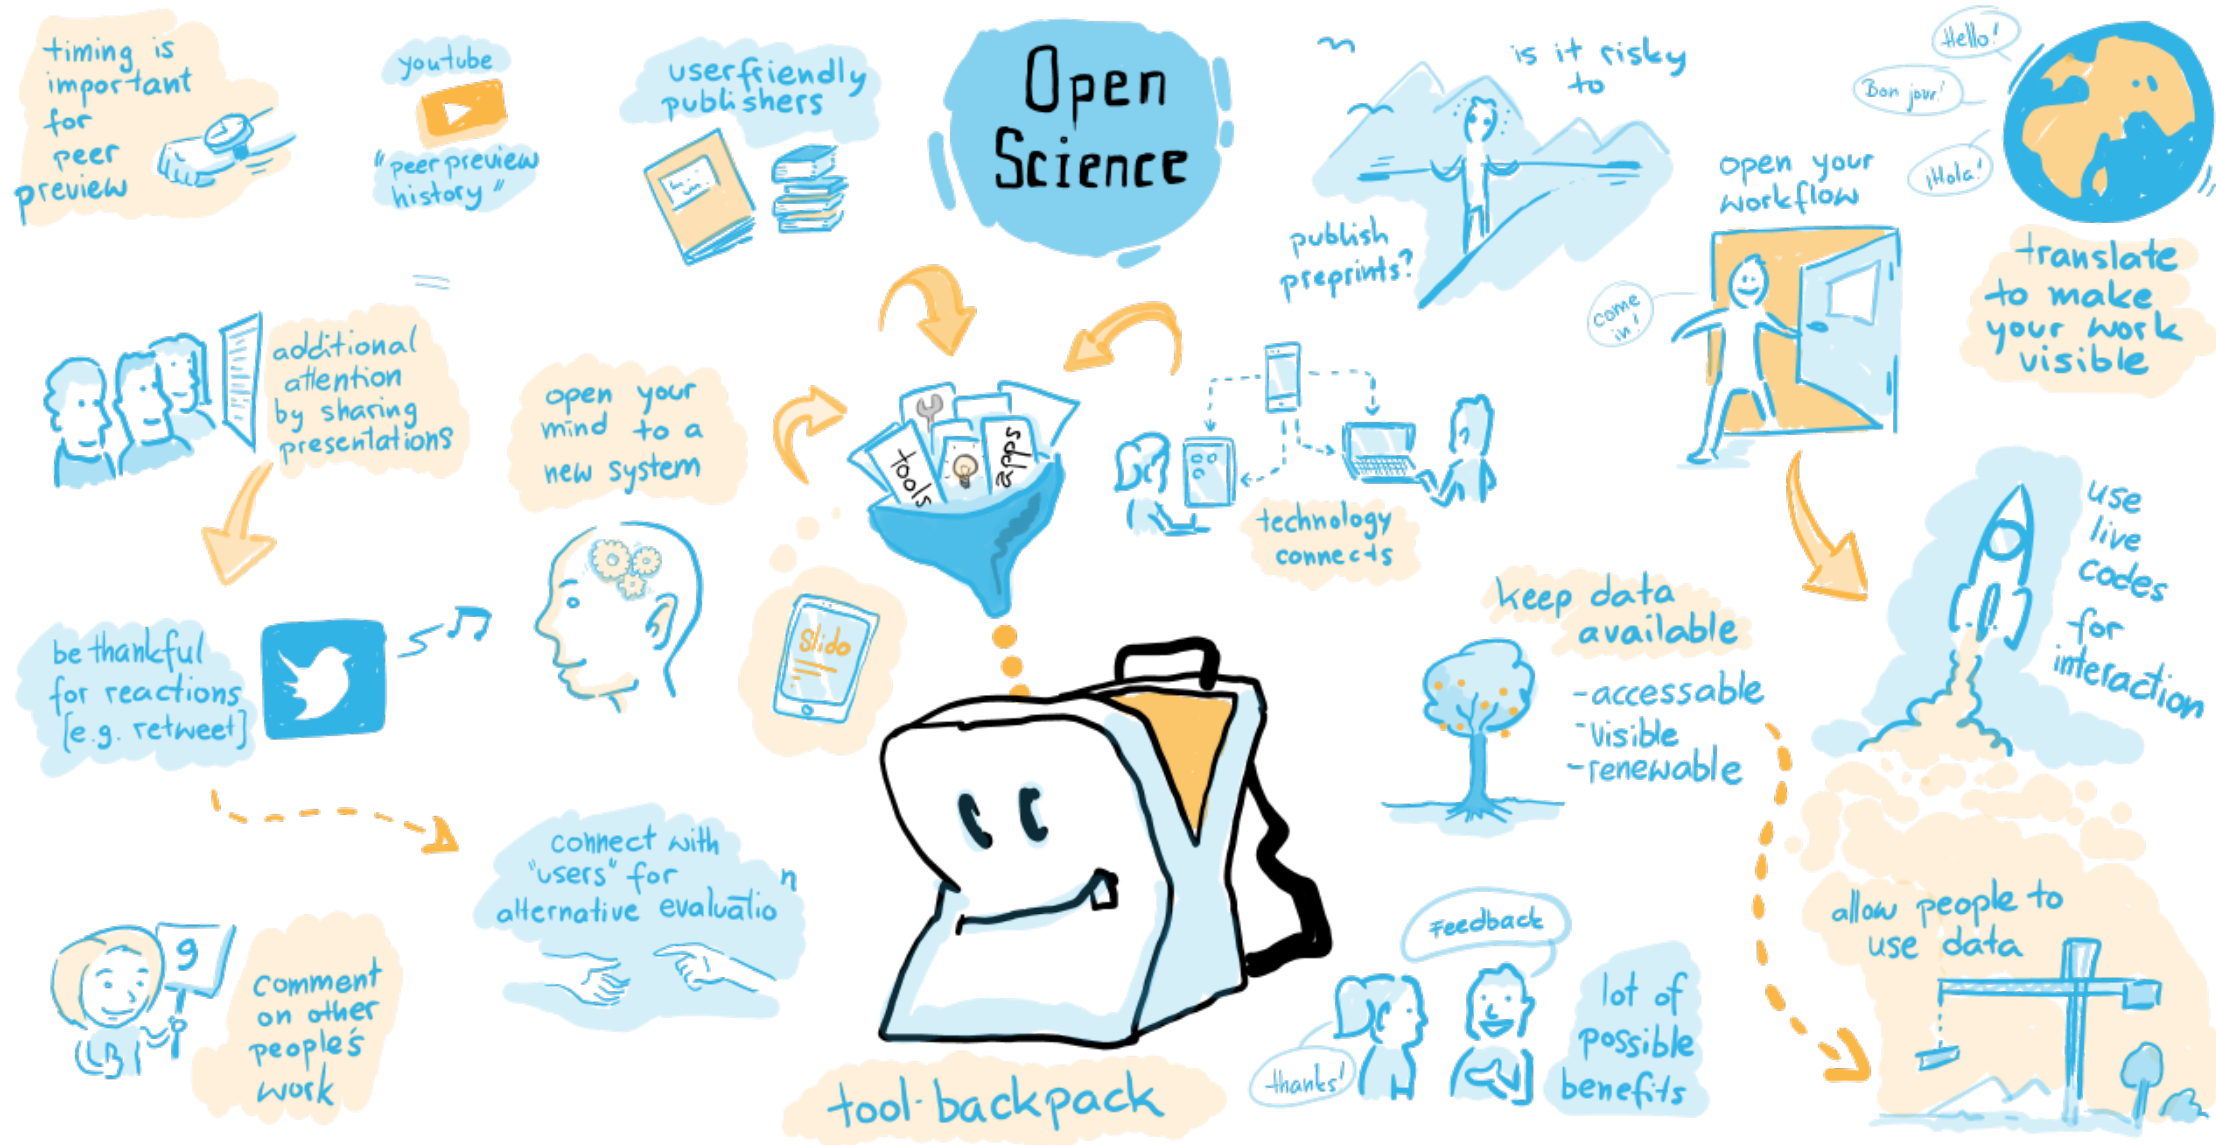 timing is
important
for
peer
preview
youtube
"peer preview
history"
userfriendly
publishers
Open
Science
is it risky
to
publish
preprints?
open your
workflow
come
in!
Hello!
Bon jour!
¡Hola!
translate
to make
your work
visible
additional
attention
by sharing
presentations
open your
mind to a
new system
tools
apps
technology
connects
use
live
codes
for
interaction
be thankful
for reactions
[e.g. retweet]
Slido
keep data
available
-accessable
-visible
-renewable
connect with
"users" for
alternative evaluation
allow people to
use data
Feedback
thanks!
lot of
possible
benefits
9
comment
on other
people's
work
tool-backpack